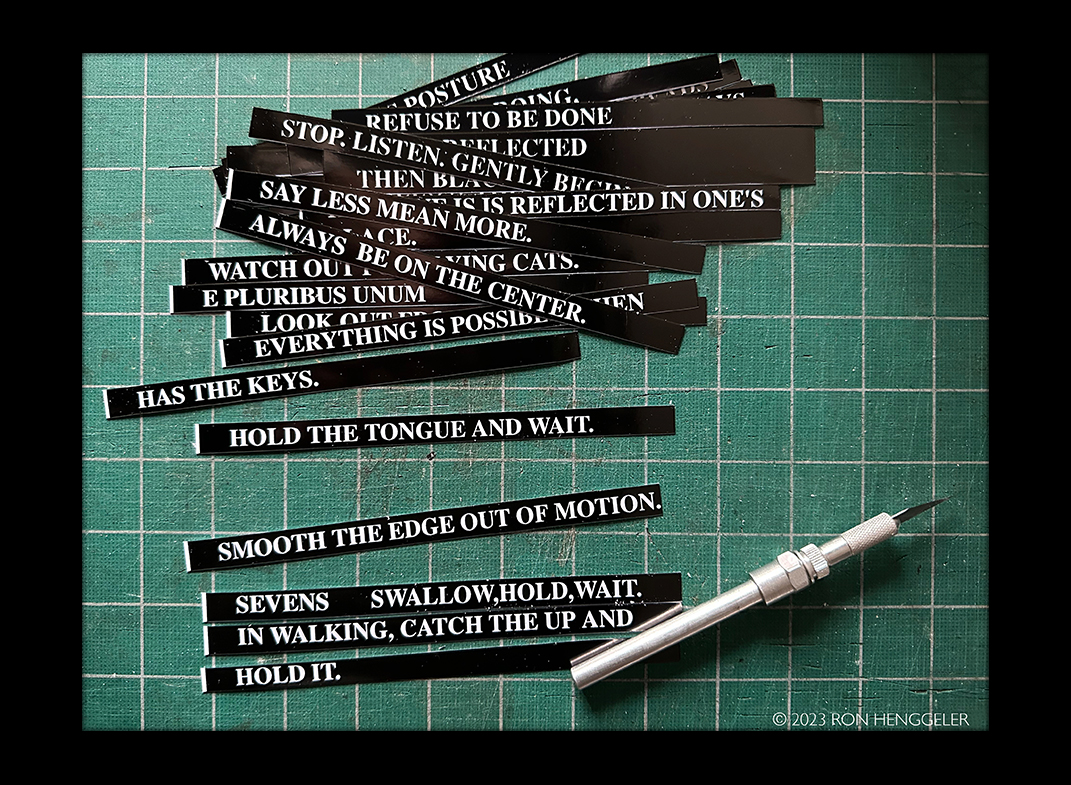 POSTURE
DOING.
REFUSE TO BE DONE
STOP. LISTEN. GENTLY
REFLECTED
THEN
IS REFLECTED IN ONE'S
SAY LESS MEAN MORE.
ALWAYS BE ON THE CENTER.
WATCH OUT CATS.
E PLURIBUS UNUM
LOOK OUT
EVERYTHING IS
HAS THE KEYS.
HOLD THE TONGUE AND WAIT.
SMOOTH THE EDGE OUT OF MOTION.
SEVENS SWALLOW,HOLD,WAIT.
IN WALKING, CATCH THE UP AND
HOLD IT.
© 2023 RON HENGGELER